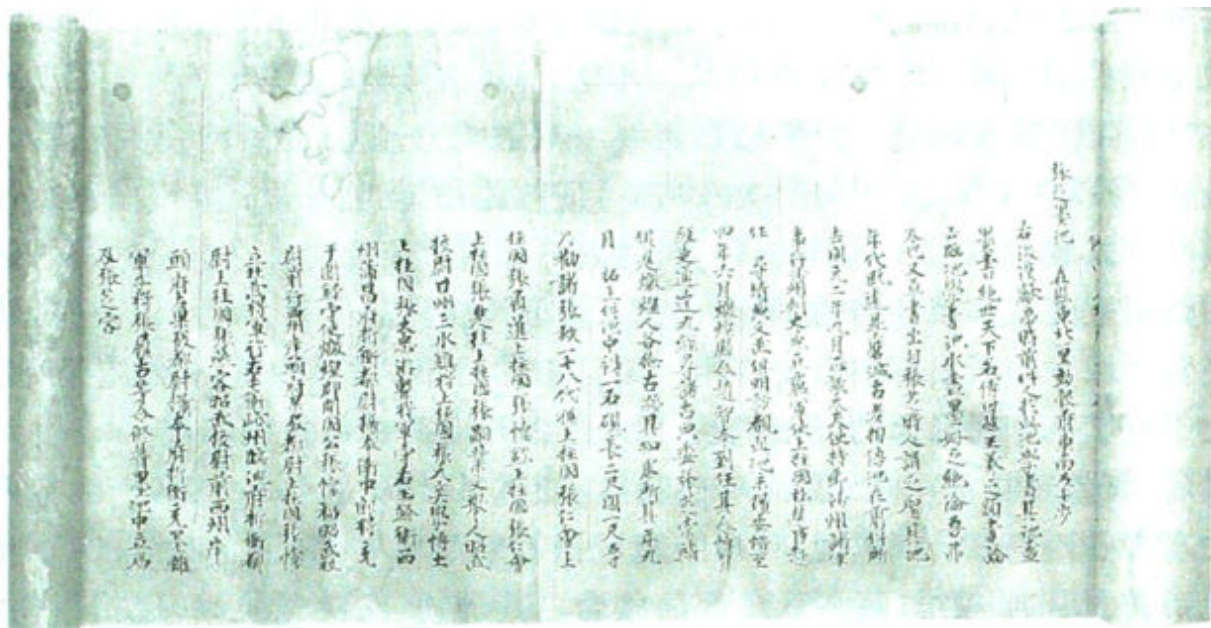 張芝墨池 在縣東北一里効穀府東南五十步
右後漢獻帝時前件人於此池學書其池盡
墨書絕世天下名傳因茲王羲之顗書論
云臨池學書池水盡墨好之絕倫吾弗
及也又草書出自張芝時人謂之聖其池
年代既遠並磨滅古老相傳池在前件所
去開元二年九月正議大夫使持節沙州諸軍
事行沙州刺史兼豆盧軍使上柱國杜楚臣赴
任尋墳典文武俱明訪覩此池未獲安惜至
四年六月燉煌縣令趙智本到任其人博覽
經史通達九經尋諸古典委張芝索靖
俱是燉煌人各檢古跡具知處所其年九
月拓上件池中得一石硯長二尺闊一尺五寸
乃勸諸張族一十八代孫上柱國張仁會上
柱國張履暹上柱國張懷欽上柱國張仁會
上柱國張楚珪上柱國張嗣業文舉人昭武
校尉甘州三水鎮將上柱國張大爽學博士
上柱國張大忠游擊將軍守右玉鈐衛西
州蒲昌府折衝都尉攝本衛中郎將充
于闐錄守使燉煌郡開國公張懷福昭武校
尉前行西州岸頭府果毅都尉上柱國張懷
立壯武將軍行右玉鈐衛
尉上柱國張 客昭武校尉前西州岸
頭府果毅都尉攝本府折衝充墨離
軍子將張履古等令修葺墨池中立廟
及張芝之容